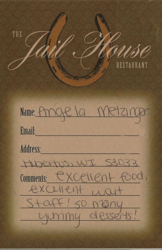 THE
Jail House
RESTAURANT
Name: Angela Metzinger
Email:
Address:
Hubertus, WI 53033
Comments: excellent food,
excellent wait
Staff! so many
yummy desserts!